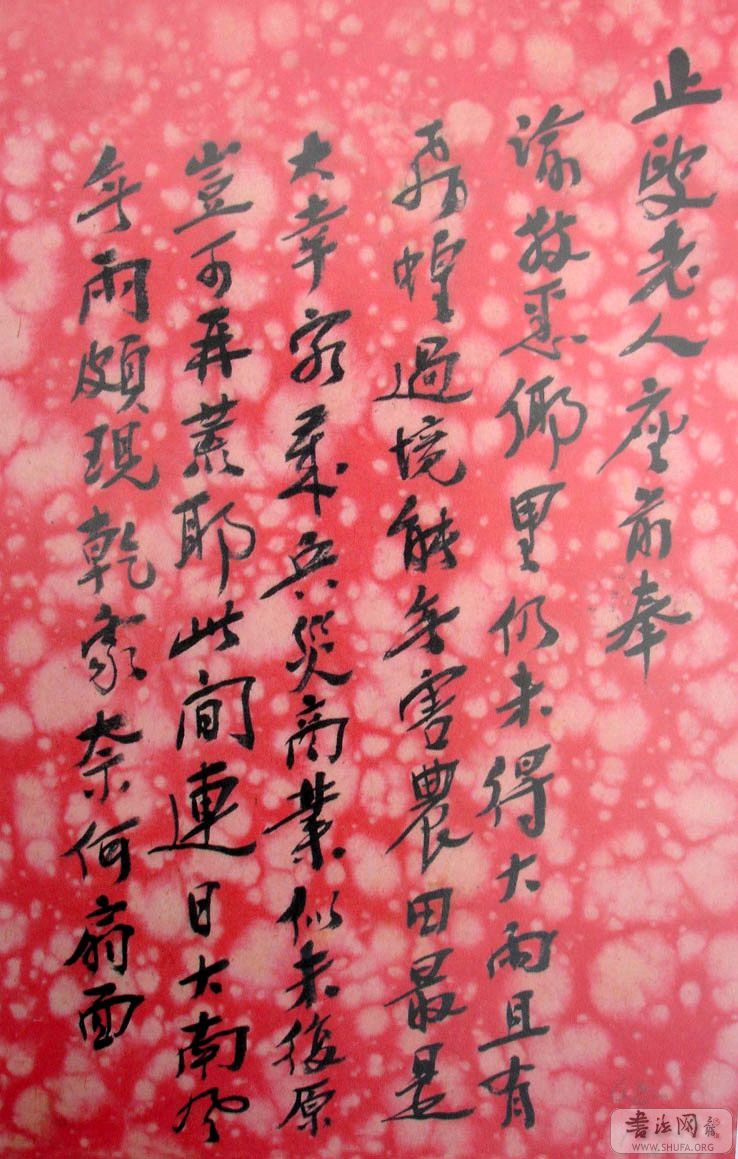 止叟老人座前奉
諭敬悉鄉里仍未得大雨且有
飛蝗過境能無害農田最是
大幸客歲兵災商業似未復原
豈可再荒耶此間連日大南風
無雨頗現乾象奈何扇面
書法网
WWW.SHUFA.ORG